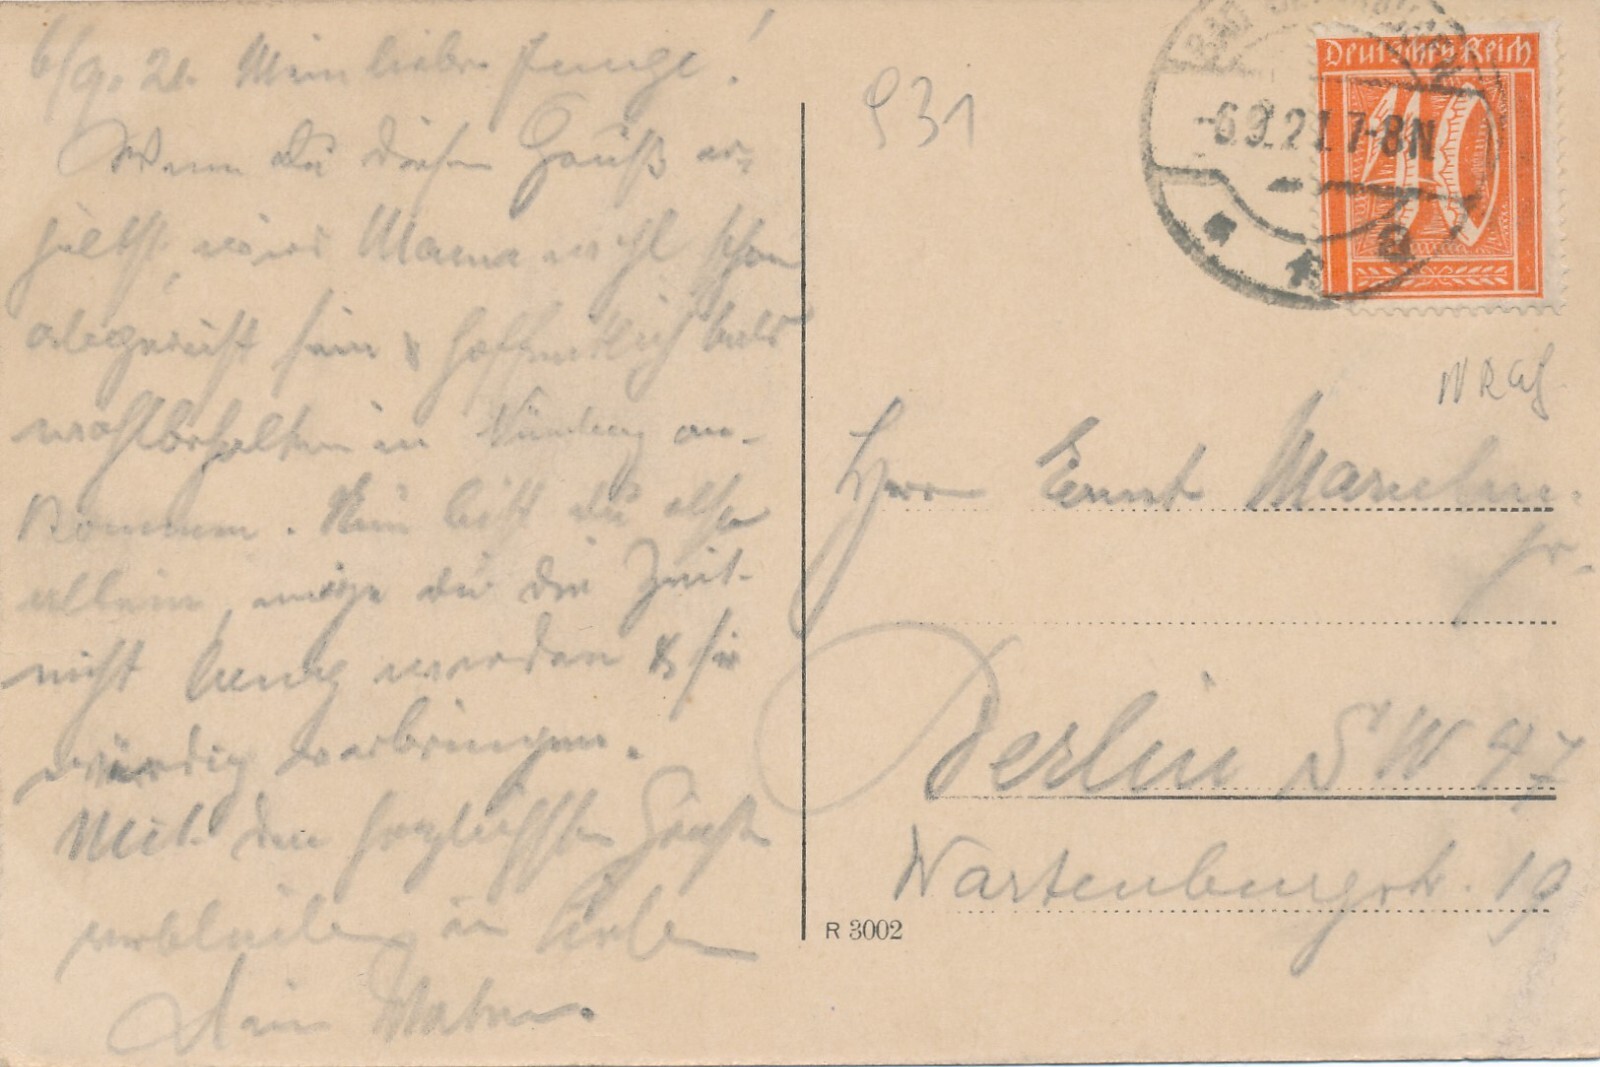 6/9. 21. Mein lieber Junge!
Wenn Du diesen Gruß er-
hältst, wird Mama wohl schon
abgereist sein & hoffentlich bald
wohlbehalten in Nürnberg an-
kommen. Nun bist du also
allein, möge dir die Zeit
nicht lang werden & sie
würdig verbringen.
Mit den herzlichsten Grüßen
verbleibe in Liebe
Dein Vater.
931
-6.9.21.7-8N
Deutsches Reich
40
Herrn Ernst
jr.
Berlin SW 47
Wartenburgstr. 19
R 3002